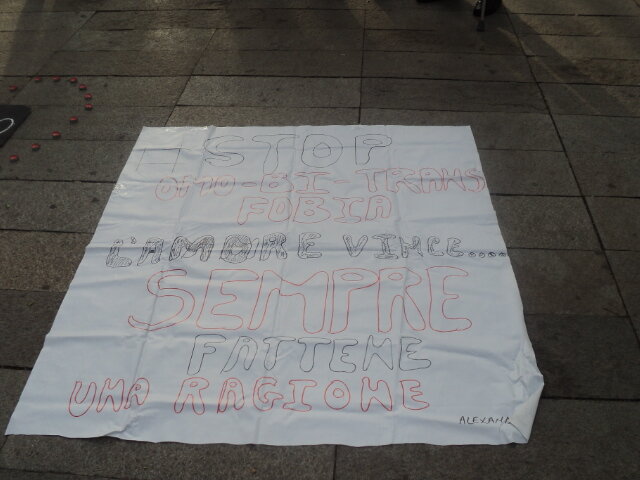 STOP
OMO-BI-TRANS
FOBIA
L'AMORE VINCE....
SEMPRE
FATTENE
UNA RAGIONE